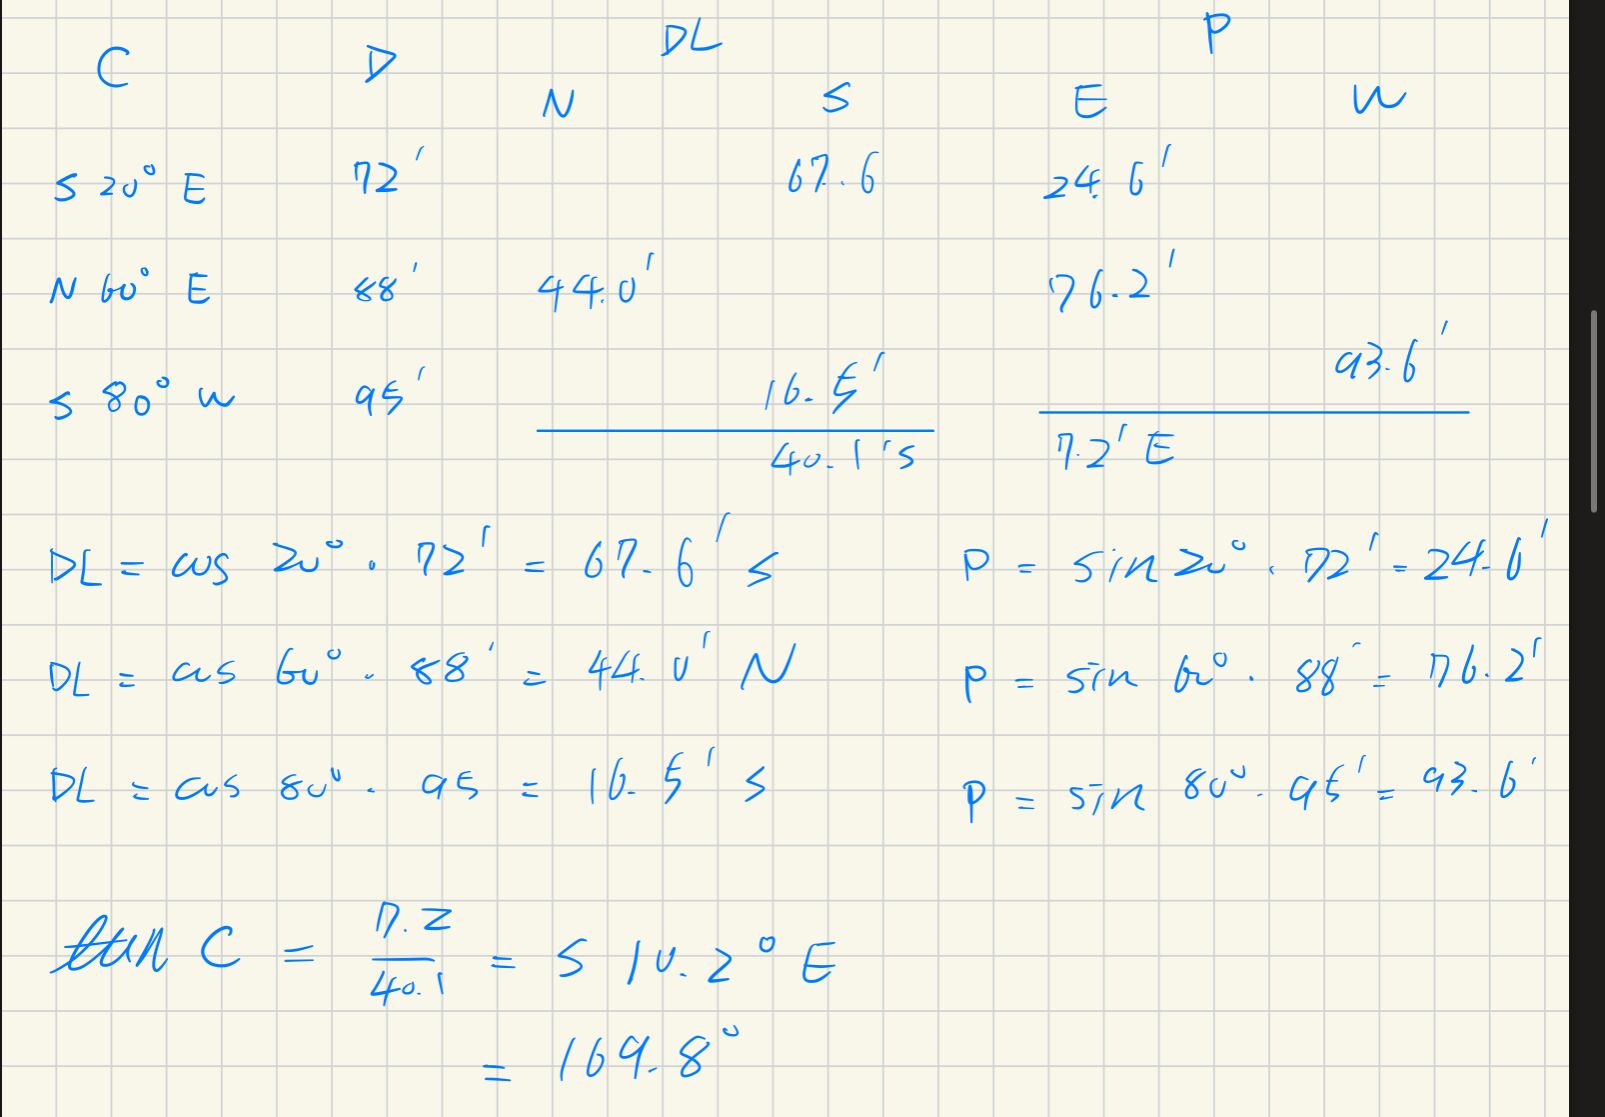 C D DL P
N S E W
S 20° E 72' 67.6 24.6'
N 60° E 88' 44.0' 76.2'
S 80° W 95' 16.5' 93.6'
40.1'S 7.2' E
DL = cos 20° · 72' = 67.6' S P = sin 20° · 72' = 24.6'
DL = cos 60° · 88' = 44.0' N P = sin 60° · 88' = 76.2'
DL = cos 80° · 95 = 16.5' S P = sin 80° · 95' = 93.6'
tan C = 7.2/40.1 = S 10.2° E
= 169.8°